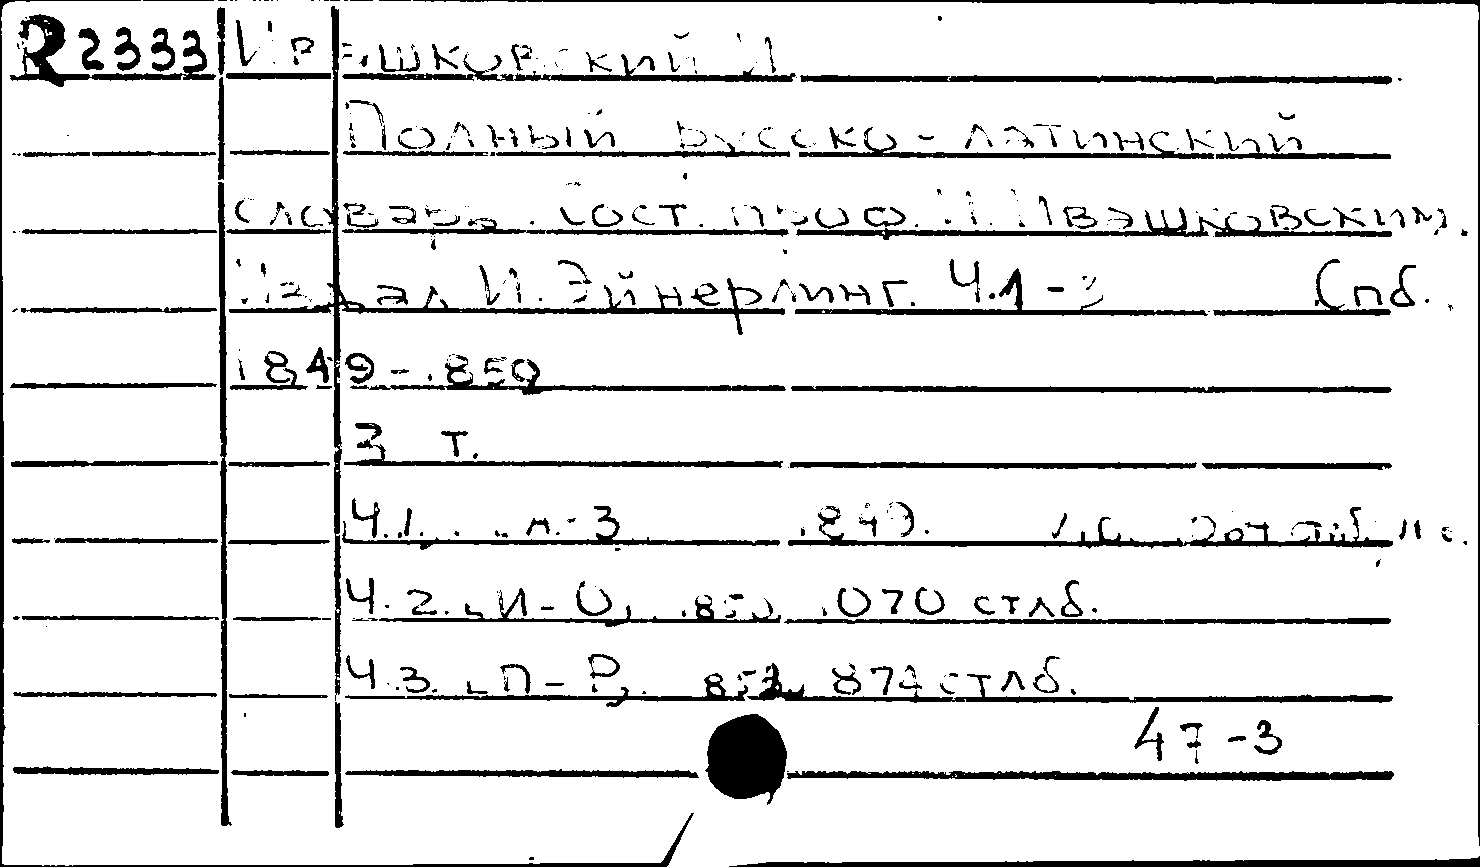 R2333 Ивашковский И
Полный русско-латинский
словарь. Сост. проф. И. Ивашковским.
Издал И. Эйнерлинг. Ч.1-3 Спб.
1849-1850
3 т.
Ч.1. А-З 1849. стлб. 11 с.
Ч.2. „И-О„ 1850 1070 стлб.
Ч.3. „П-Р„ 874 стлб.
47-3